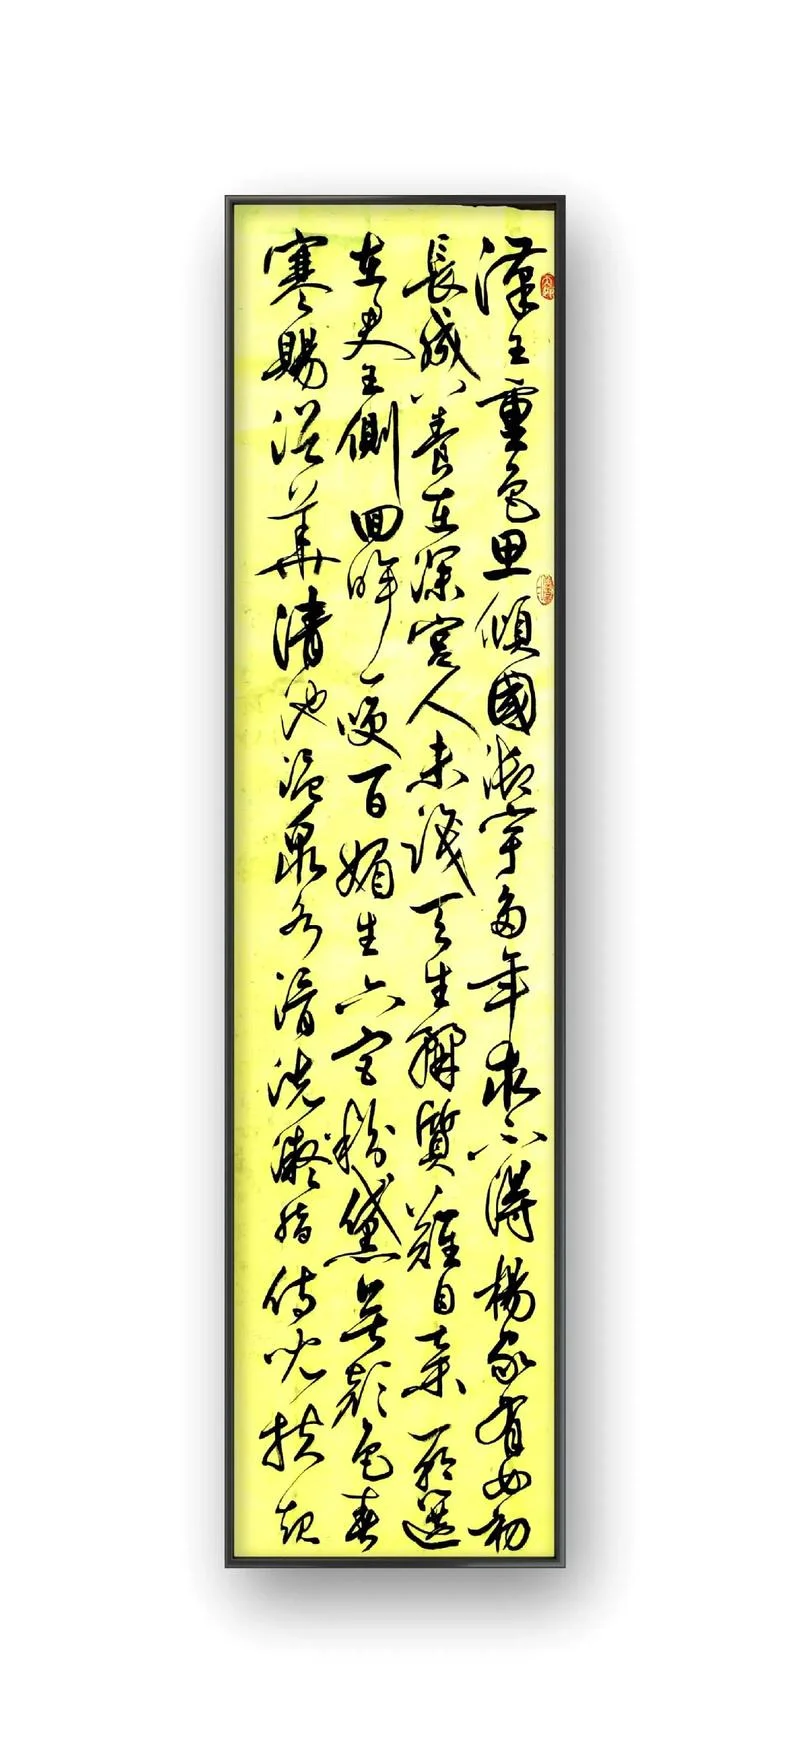 漢王重色思傾國御宇多年求不得楊家有女初
長成養在深宮人未識天生麗質難自棄一朝選
在君王側回眸一咲百媚生六宮粉黛無顏色春
寒賜浴華清池溫泉水滑洗凝脂侍兒扶起